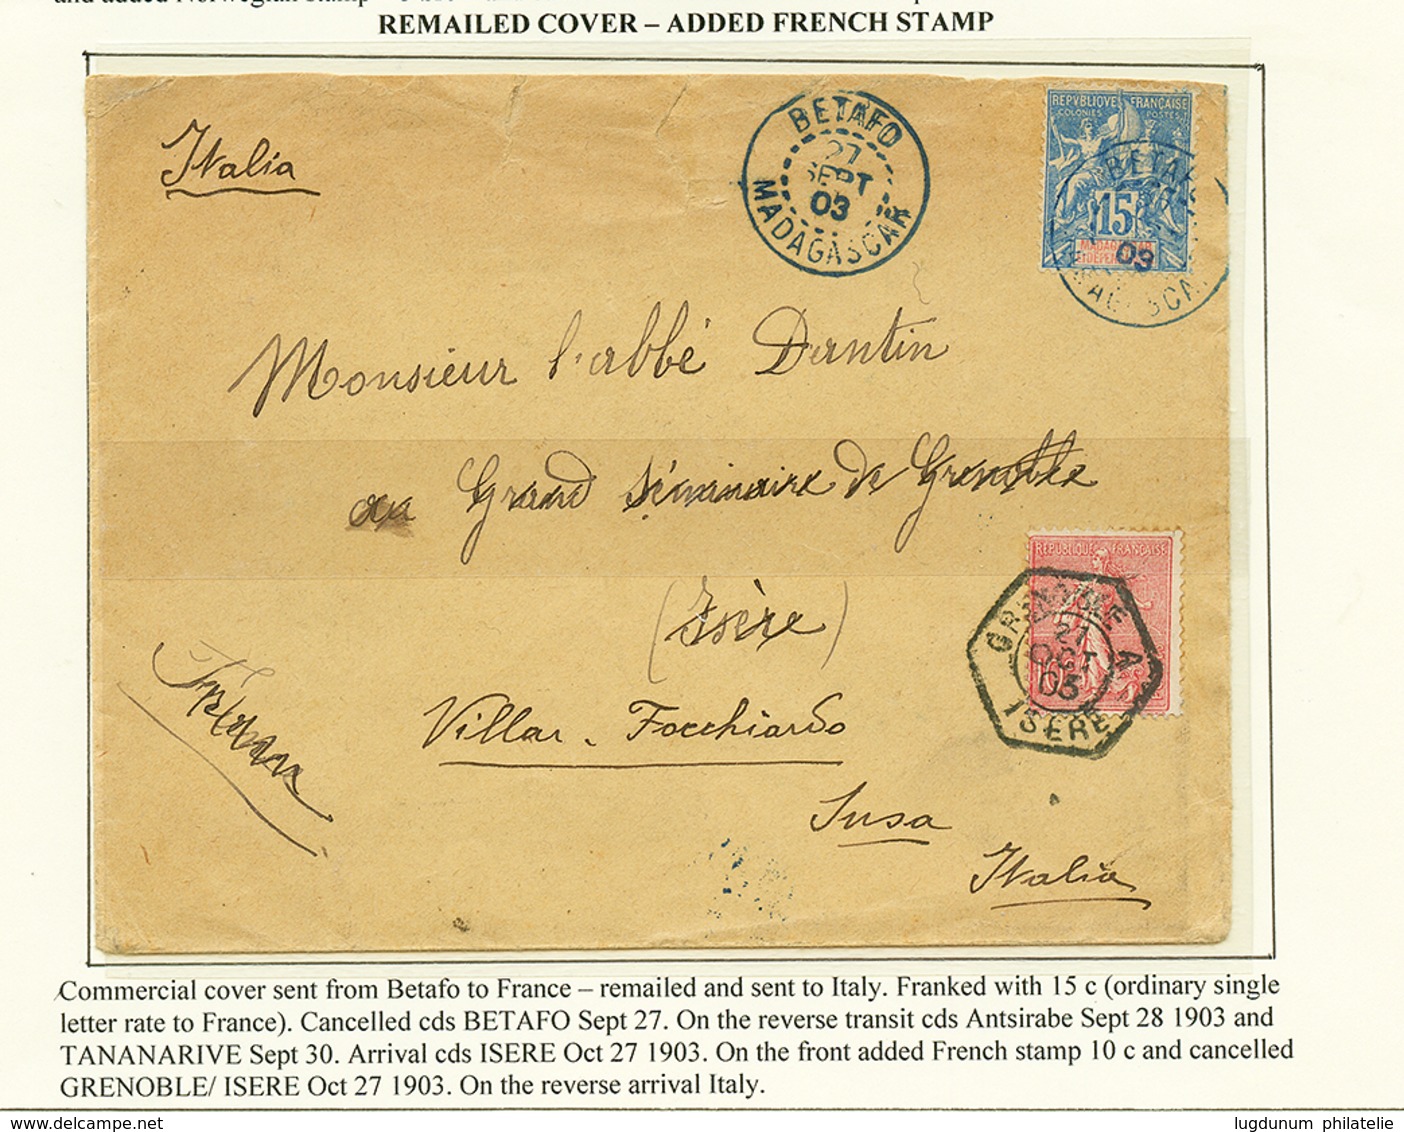 REMAILED COVER – ADDED FRENCH STAMP
Italia
BETAFO
27
SEPT
03
MADAGASCAR
REPVBLIQVE FRANÇAISE
COLONIES POSTES
15
MADAGASCAR
BETAFO
03
MADAGASCAR
Monsieur l'abbé Dantin
au Grand Séminaire de Grenoble
(Isère)
REPUBLIQUE FRANÇAISE
10c
GRENOBLE A
27
OCT
03
ISERE
Villar - Focchiardo
Susa
Italia
Commercial cover sent from Betafo to France – remailed and sent to Italy. Franked with 15 c (ordinary single
letter rate to France). Cancelled cds BETAFO Sept 27. On the reverse transit cds Antsirabe Sept 28 1903 and
TANANARIVE Sept 30. Arrival cds ISERE Oct 27 1903. On the front added French stamp 10 c and cancelled
GRENOBLE/ ISERE Oct 27 1903. On the reverse arrival Italy.
lugdunum philatelie